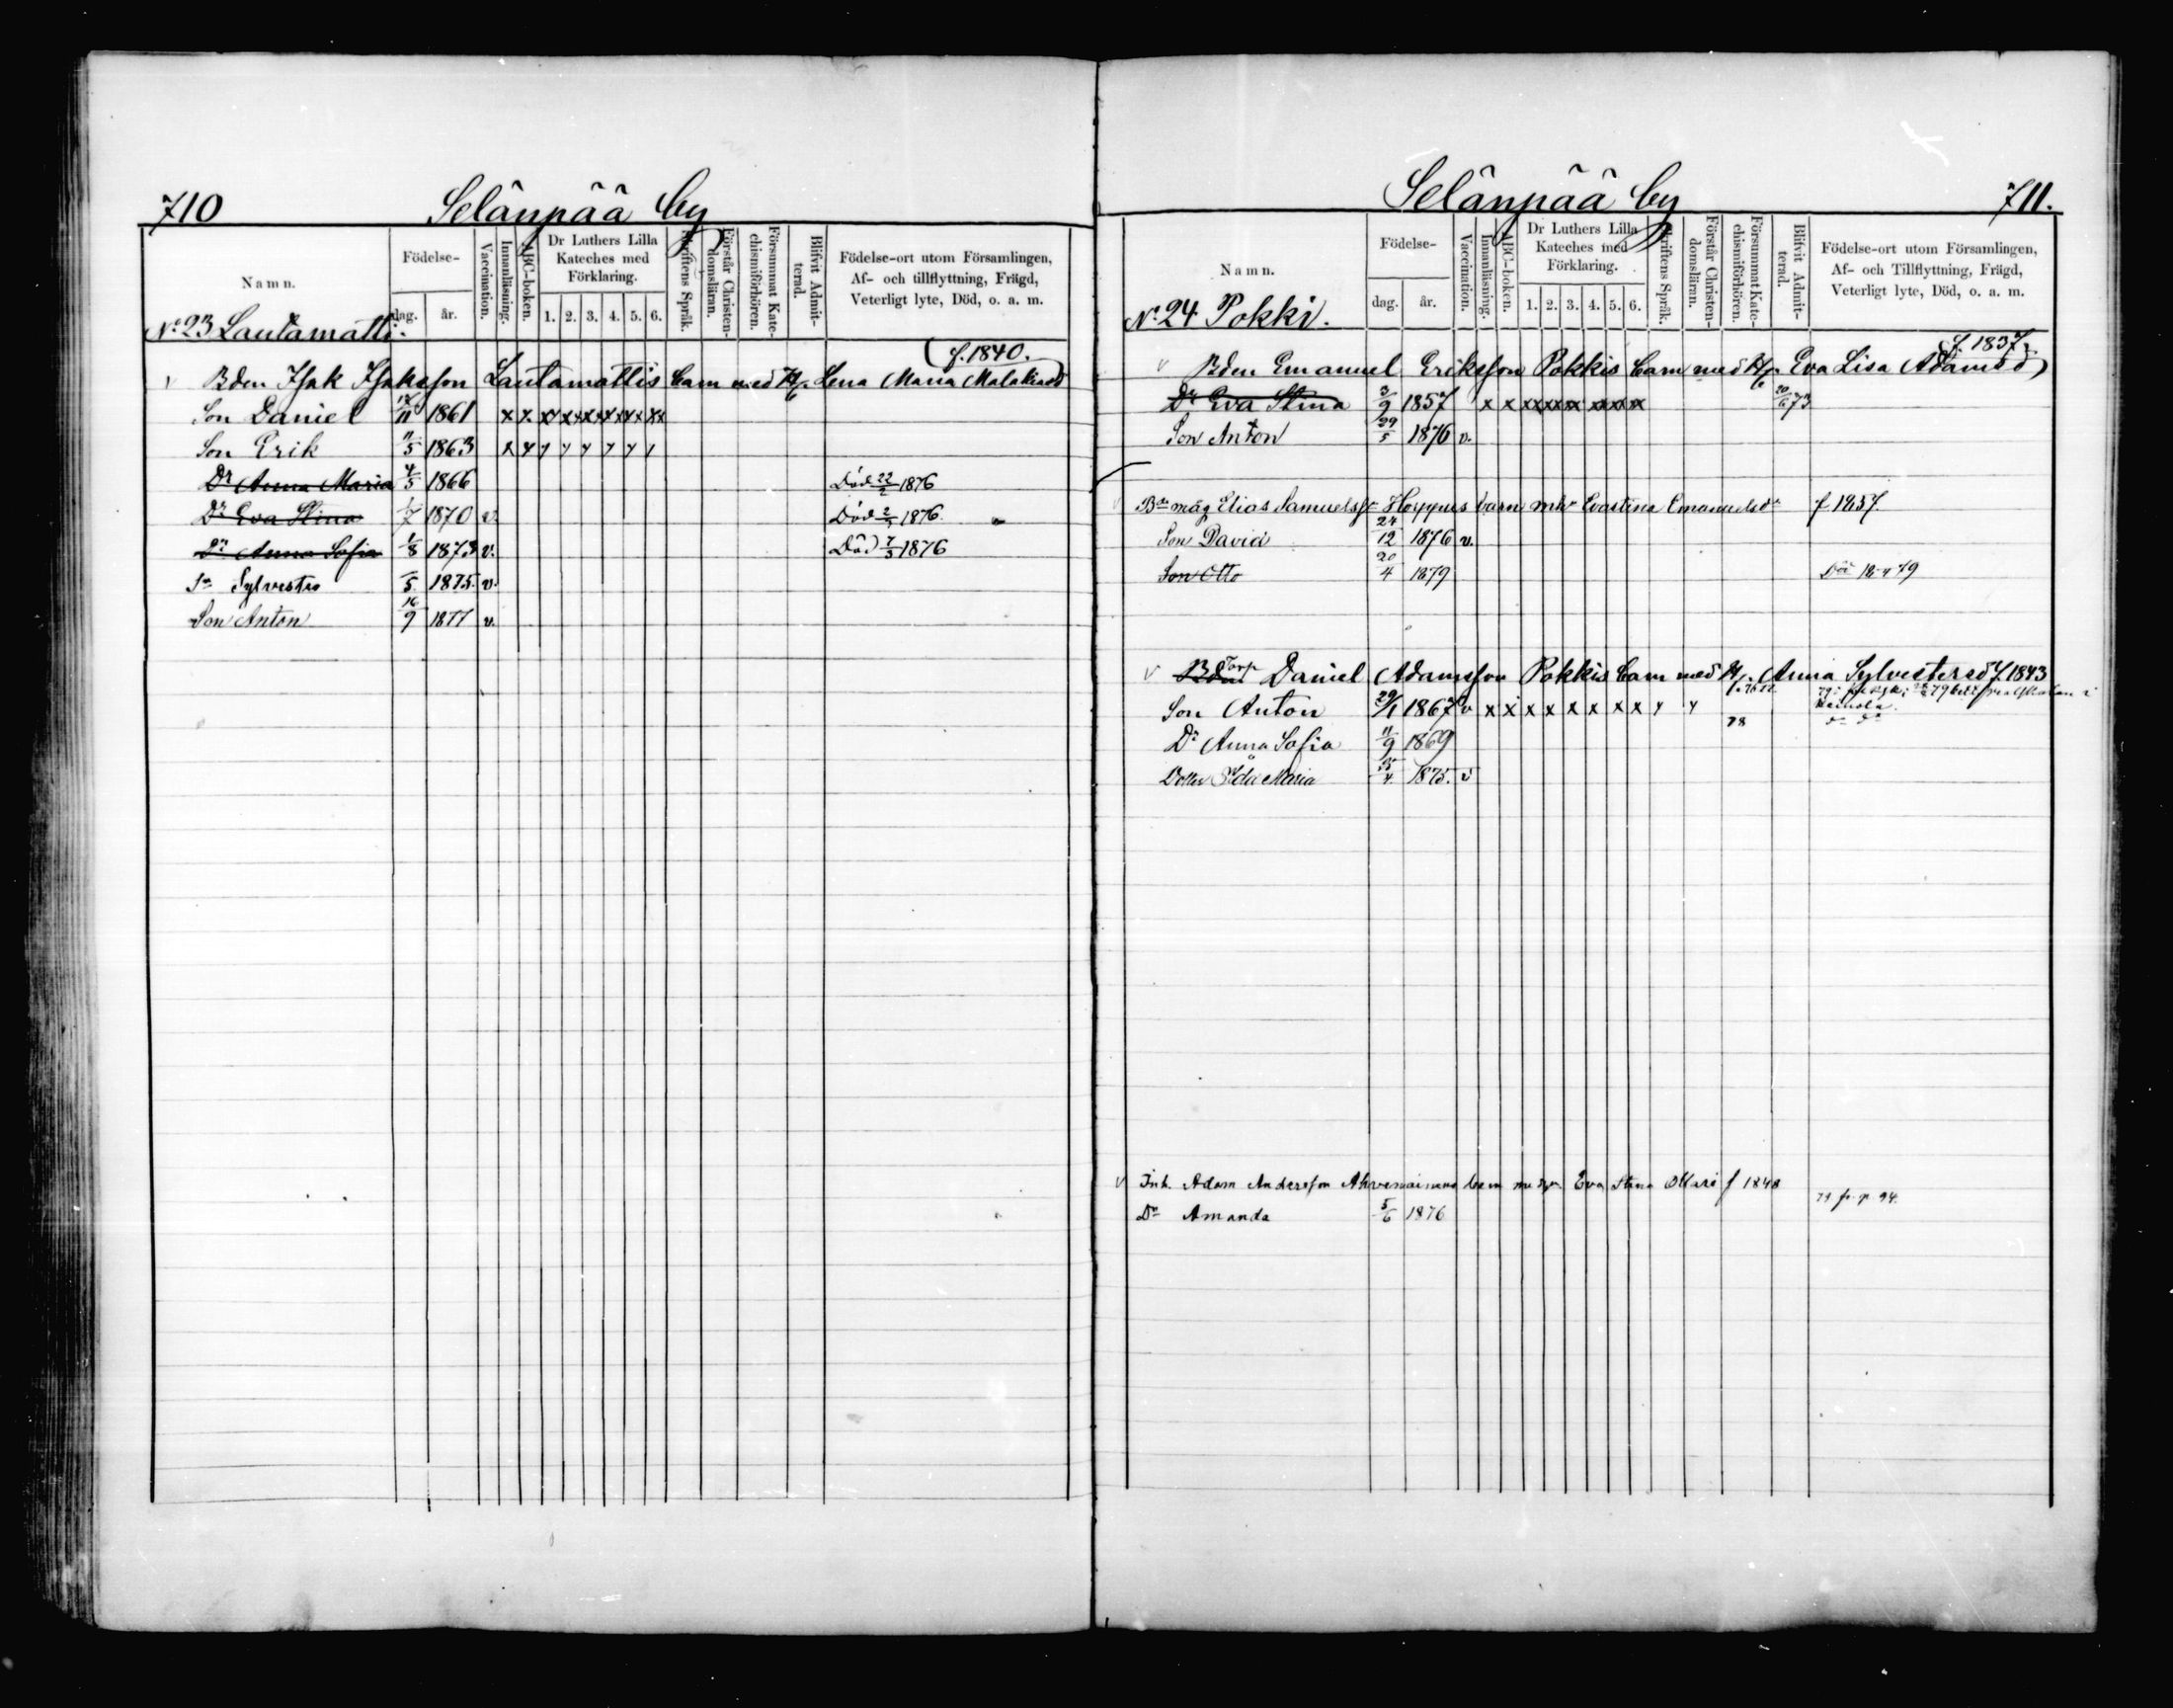 710
Selänpää by
Namn.
Födelse-
dag.
år.
Vaccination.
Innanläsning.
ABC-boken.
Dr Luthers Lilla
Kateches med
Förklaring.
1. 2. 3. 4. 5. 6.
Skriftens Språk.
Förstår Christen-
domsläran.
Försummat Kate-
chismiförhören.
Blifvit Admit-
terad.
Födelse-ort utom Församlingen,
Af- och tillflyttning, Frägd,
Veterligt lyte, Död, o. a. m.
No 23 Lautamatti.
f. 1840.
Bden Isak Isaksson Lautamattis barn med H. Lena Maria Malakisd
Son Daniel 11 1861
Son Erik 11/5 1863
Dr Anna Maria 4/5 1866 Död 22/2 1876
Dr Eva Stina 1/7 1870 v. Död 1876
Dr Anna Sofia 1/8 1873 v. Död 7/3 1876
Sn Sylvester 5 1875 v.
Son Anton 16/9 1877 v.
Selänpää by
711.
Namn.
Födelse-
dag.
år.
Vaccination.
Innanläsning.
ABC-boken.
Dr Luthers Lilla
Kateches med
Förklaring.
1. 2. 3. 4. 5. 6.
Skriftens Språk.
Förstår Christen-
domsläran.
Försummat Kate-
chismiförhören.
Blifvit Admit-
terad.
Födelse-ort utom Församlingen,
Af- och Tillflyttning, Frägd,
Veterligt lyte, Död, o. a. m.
No 24 Pokki.
f. 1837.
v Bden Emanuel Eriksson Pokkis barn med H. Eva Lisa Adamsd
Dr Eva Stina 3/9 1857 x x x x x x x x x 20/6 73
Son Anton 29/5 1876 v.
Bde måg Elias Samuelss. Hoppus barn m h Evastina Emanuelsdr f 1857.
Son David 24/12 1876 v.
Son Otto 20/4 1879
v Bden Torp Daniel Adamsson Pokkis barn med H. Anna Sylvestersd f. 1843
Son Anton 29/1 1867 v x x x x x x x x
Heinola.
Dr Anna Sofia 11/9 1869 78
Dotter Ida Maria 4 1875. v
v Inh. Adam Andersson Ahvenainens barn med Eva Stina f 1848
Dr Amanda 5/6 1876 79 fr. p. 94